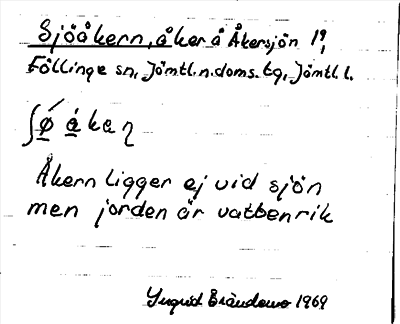 Sjöåkern, åker å Åkersjön 19,
Föllinge sn, Jämtl.n.doms.tg, Jämtl.l.
ʃǿ ákeɳ
Åkern ligger ej vid sjön
men jorden är vattenrik
Ingrid 1969